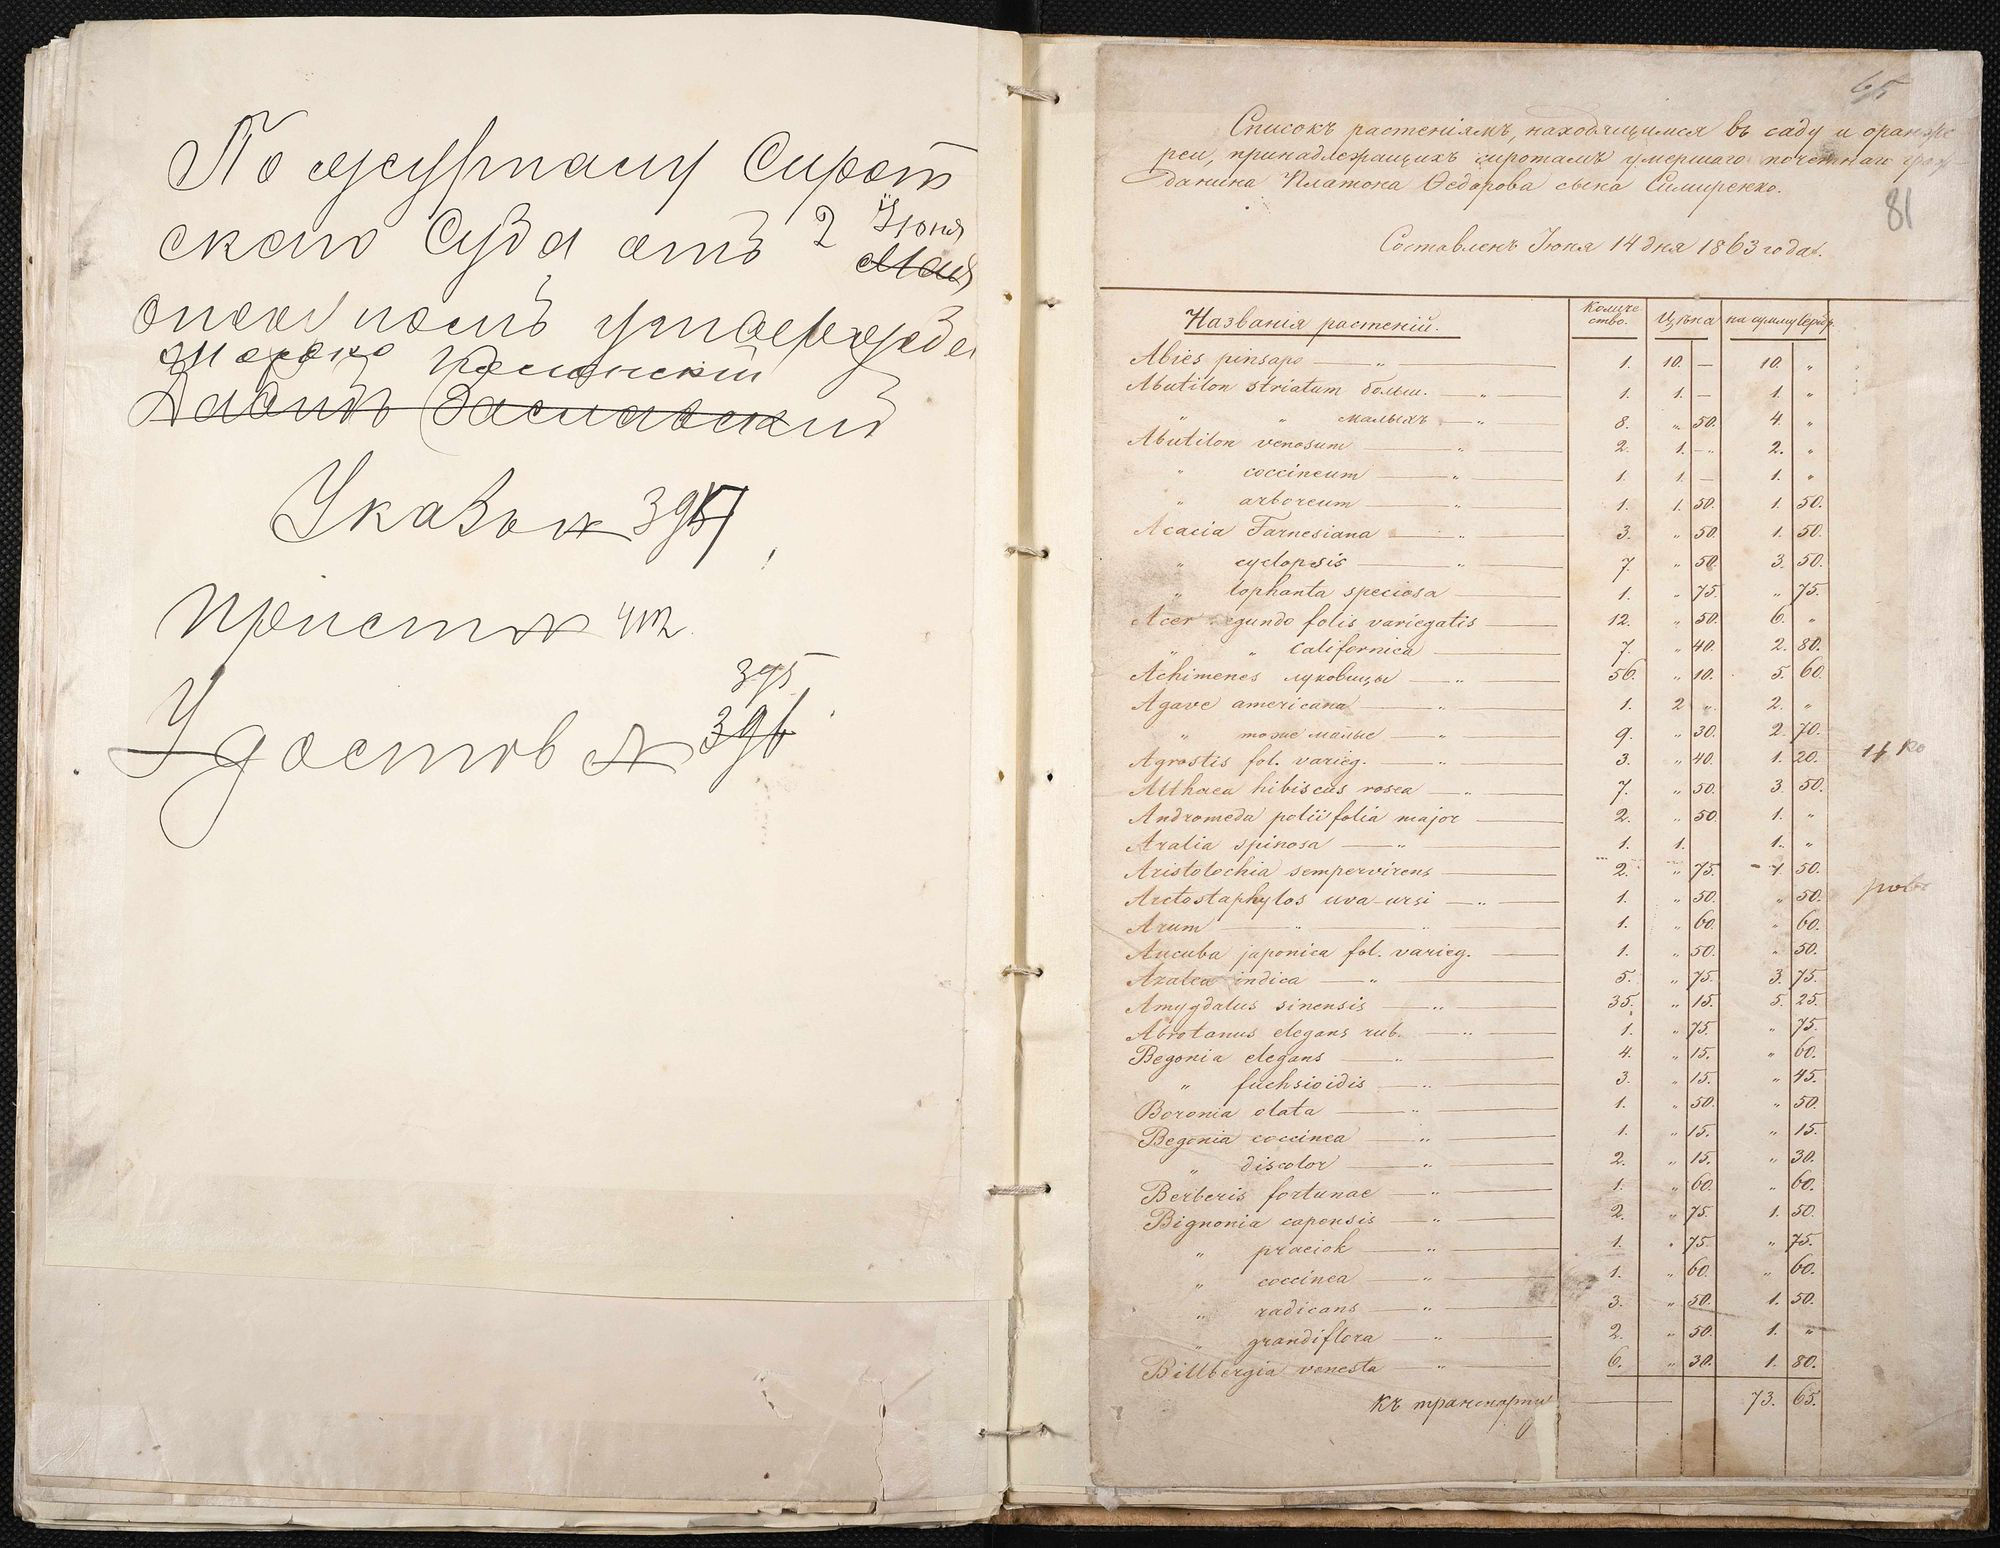 По журналу Сирот
скаго Суда отъ 2 Іюня
Мая
опекуномъ утвержде
Марко
Давидъ Заславскій
Указъ № 397
прист № 412
395
Удостов № 396
65
Списокъ растеніямъ, находящимся въ саду и оранже
реи, принадлежащихъ сиротамъ умершаго почетнаго граж-
данина Платона Ѳедорова сына Симиренко.
81
Составленъ Іюня 14 дня 1863 года.
Названія растеній. Количе ство. Цѣна на сумму серебр.
Abies pinsapo — „ — 1. 10. — 10. „
Abutilon striatum больш. — „ — 1. 1. — 1. „
„ „ малыхъ — „ — 8. „ 50. 4. „
Abutilon venosum — „ — 2. 1. — 2. „
„ coccineum — „ — 1. 1. — 1. „
„ arboreum — „ — 1. 1. 50. 1. 50.
Acacia Farnesiana — „ — 3. „ 50. 1. 50.
„ cyclopsis — „ — 7. „ 50. 3. 50.
„ lophanta speciosa — 1. „ 75. „ 75.
Acer negundo folis variegatis — 12. „ 50. 6. „
„ „ californica — 7. „ 40. 2. 80.
Achimenes луковицы — „ — 56. „ 10. 5. 60.
Agave americana — „ — 1. 2 „ 2. „
„ тоже малые — „ — 9. „ 30. 2. 70.
Agrostis fol. varieg. — „ — 3. „ 40. 1. 20.
Althaea hibiscus rosea — „ — 7. „ 50. 3. 50.
Andromeda poliifolia major — 2. „ 50. 1. „
Aralia spinosa — „ — 1. 1. 1. „
Aristolochia sempervirens — 2. „ 75. 1. 50.
Arctostaphylos uva-ursi — „ — 1. „ 50. „ 50.
Arum — „ — „ — 1. „ 60. „ 60.
Aucuba japonica fol. varieg. — 1. „ 50. „ 50.
Azalea indica — „ — 5. „ 75. 3. 75.
Amygdalus sinensis — „ — 35. „ 15. 5. 25.
Abrotanus elegans rub. — „ — 1. „ 75. „ 75.
Begonia elegans — „ — 4. „ 15. „ 60.
„ fuchsioidis — „ — 3. „ 15. „ 45.
Boronia olata — „ — 1. „ 50. „ 50.
Begonia coccinea — „ — 1. „ 15. „ 15.
„ discolor — „ — 2. „ 15. „ 30.
Berberis fortunae — „ — 1. „ 60. „ 60.
Bignonia capensis — „ — 2. „ 75. 1. 50.
„ praciok — „ — 1. „ 75. „ 75.
„ coccinea — „ — 1. „ 60. „ 60.
„ radicans — „ — 3. „ 50. 1. 50.
„ grandiflora — „ — 2. „ 50. 1. „
Billbergia venesta — „ — 6. „ 30. 1. 80.
Къ транспорту — 73. 65.